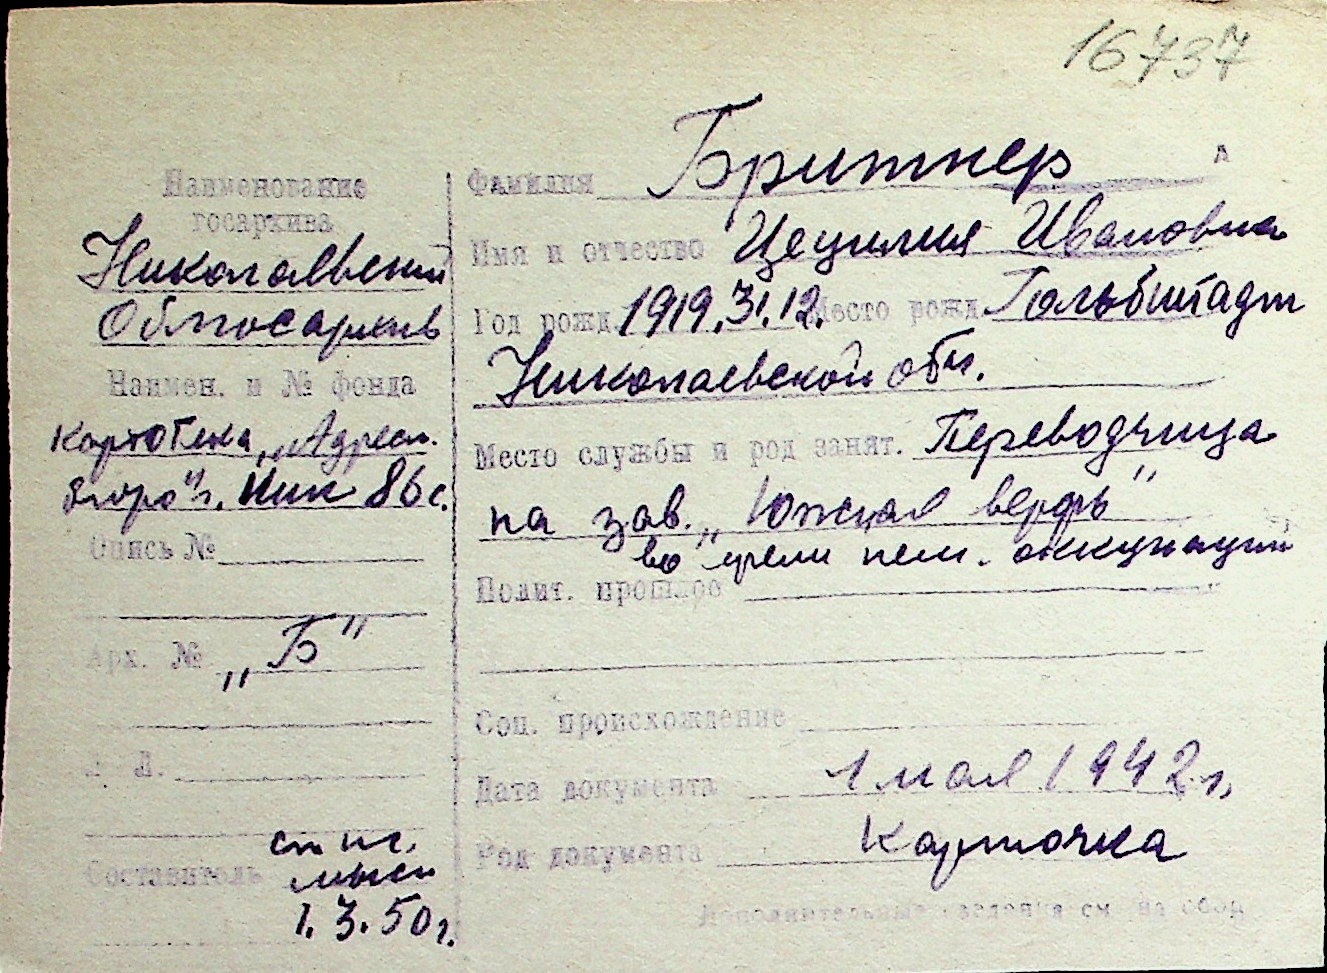 16737
Наименование
госархива
Николаевский
Облгосархив
Наимен. и № фонда
Картотека „Адресн.
бюро" г. Ник 86 с.
Опись №
Арх. № „Б"
Л.
Составитель
1.3.50г.
Фамилия Бритнер
Имя и отчество Цецилия Ивановна
Год рожд. 1919.31.12. Место рожд. Гальбштадт
Николаевской обл.
Место службы и род занят. Переводчица
на зав. „Южная верфь"
во время нем. оккупации
Полит. прошлое
Соц. происхождение
Дата документа 1 мая 1942 г.
Род документа Карточка
Дополнительные сведения см. на обор.